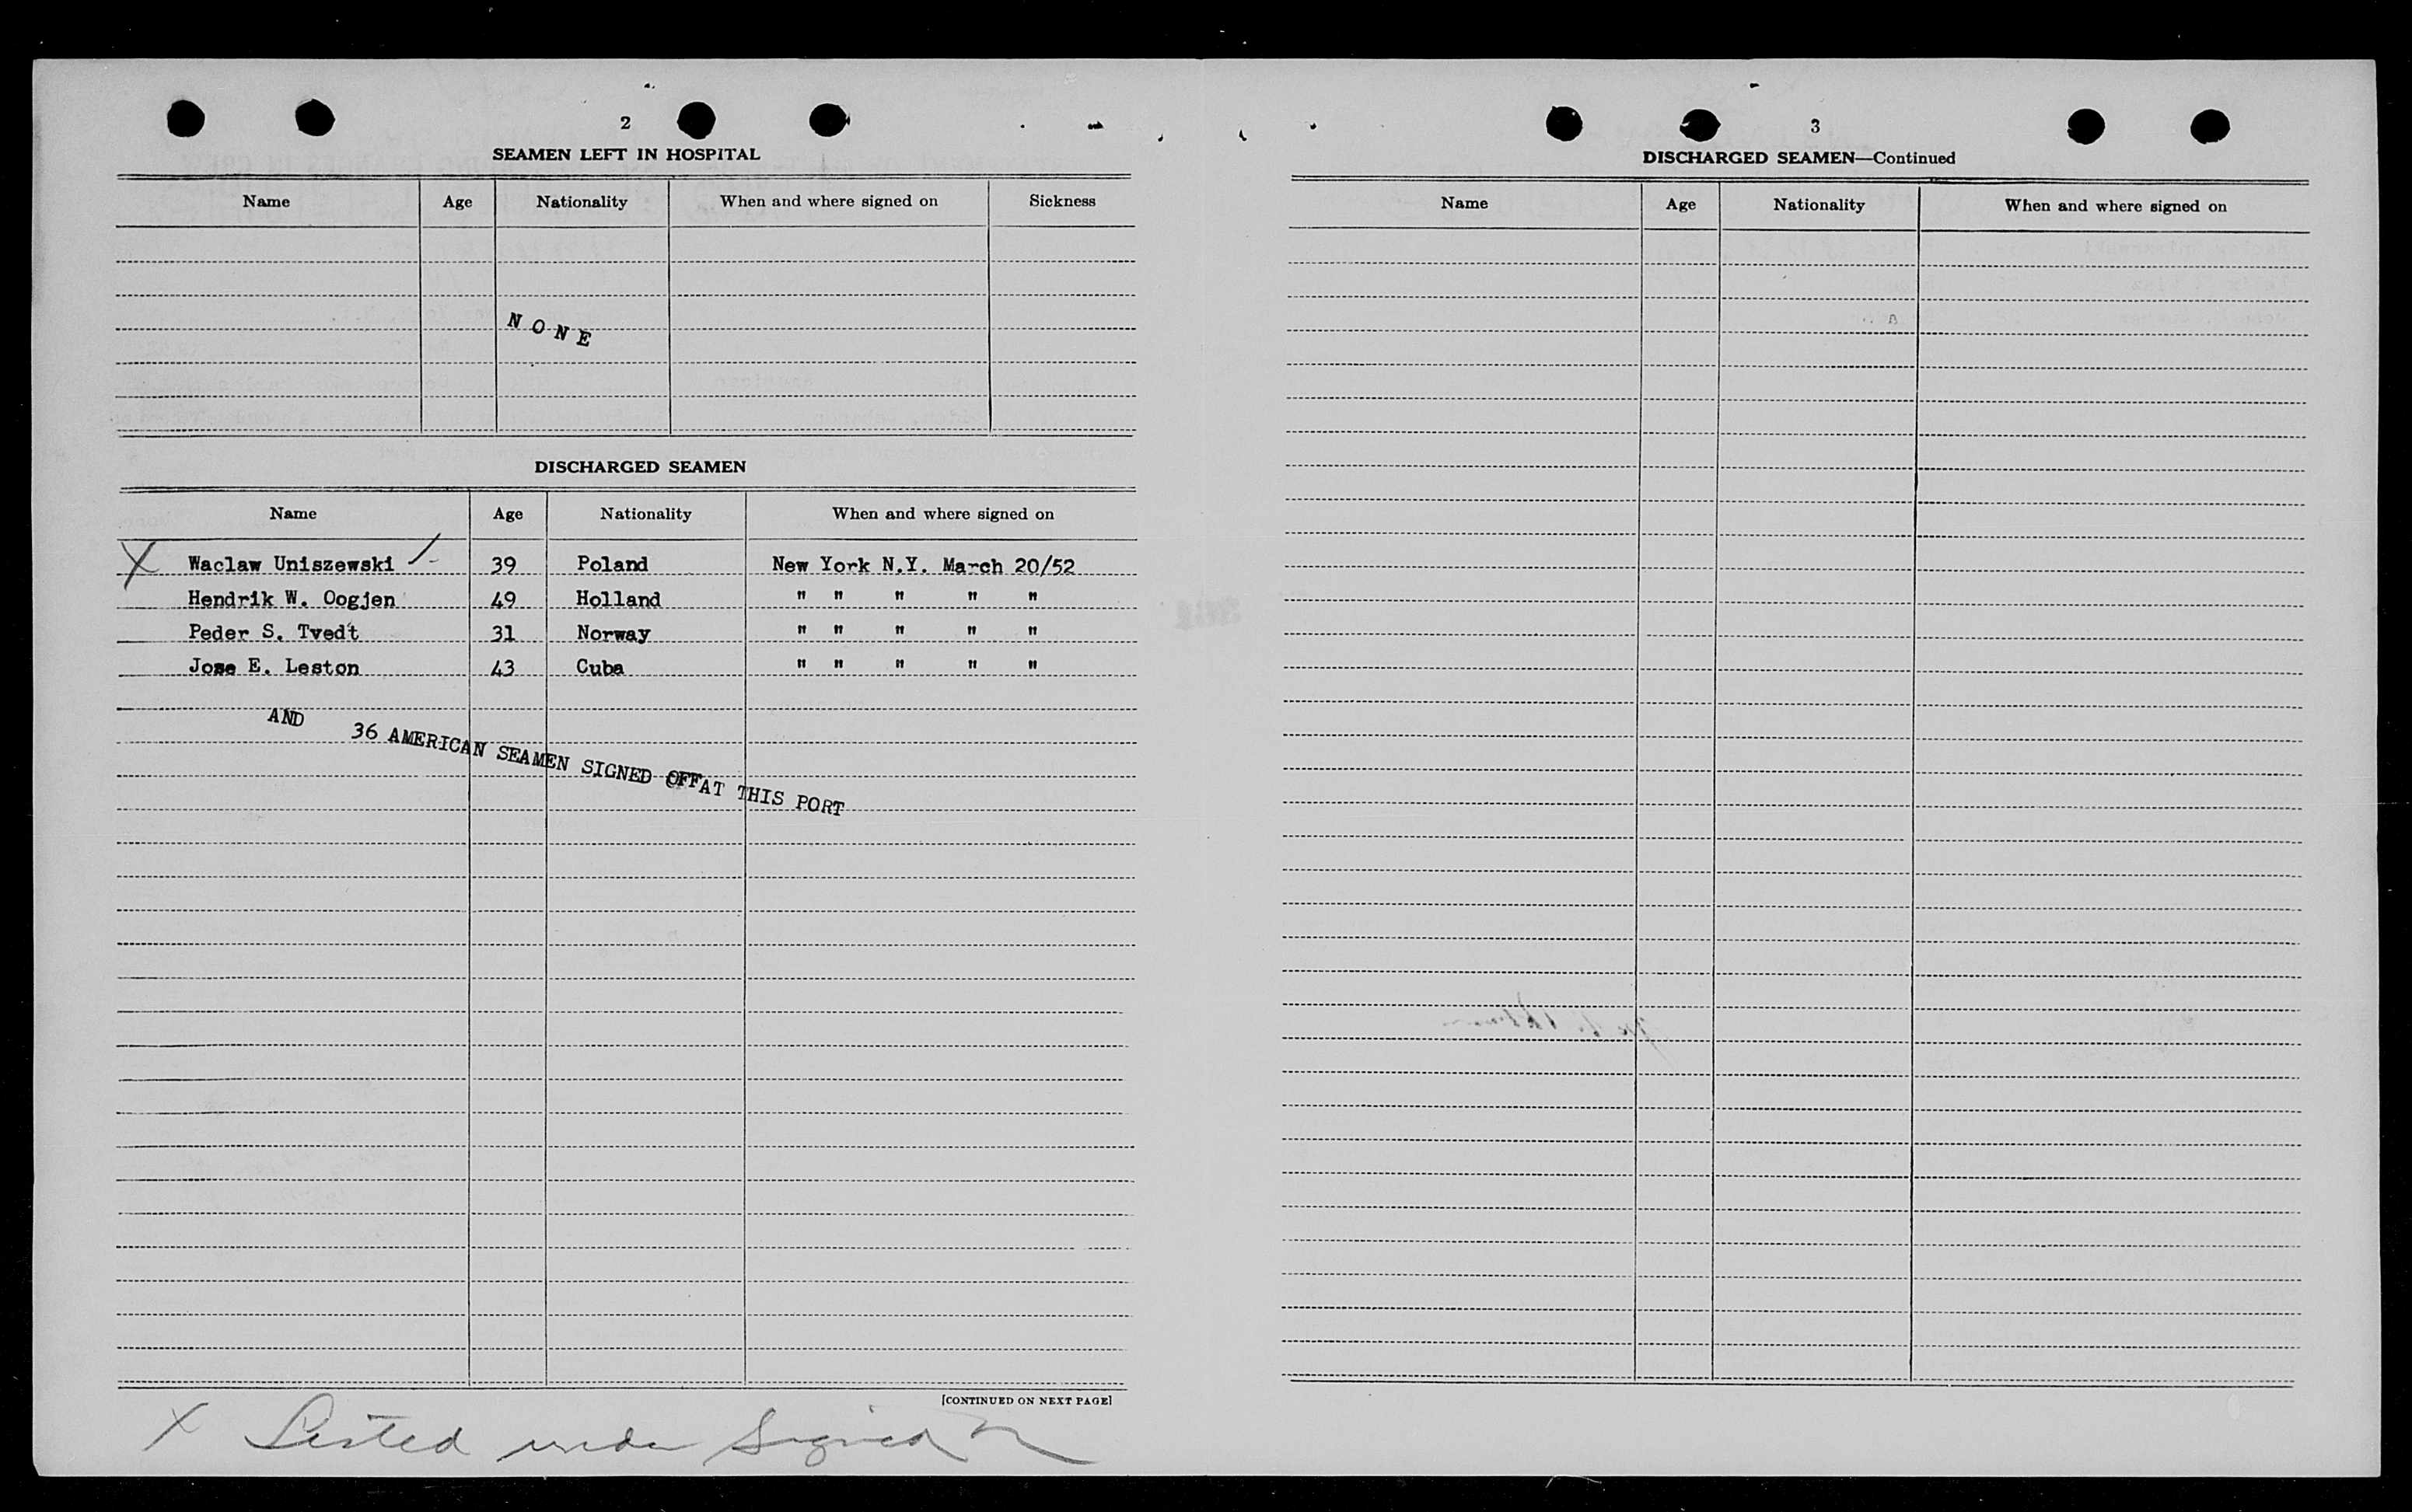 2
SEAMEN LEFT IN HOSPITAL
Name Age Nationality When and where signed on Sickness
NONE
DISCHARGED SEAMEN
Name Age Nationality When and where signed on
X Waclaw Uniszewski 39 Poland New York N.Y. March 20/52
Hendrik W. Oogjen 49 Holland " " " " "
Peder S. Tvedt 31 Norway " " " " "
Jose E. Leston 43 Cuba " " " " "
AND 36 AMERICAN SEAMEN SIGNED OFF AT THIS PORT
[CONTINUED ON NEXT PAGE]
X Listed under Signed on
3
DISCHARGED SEAMEN—Continued
Name Age Nationality When and where signed on